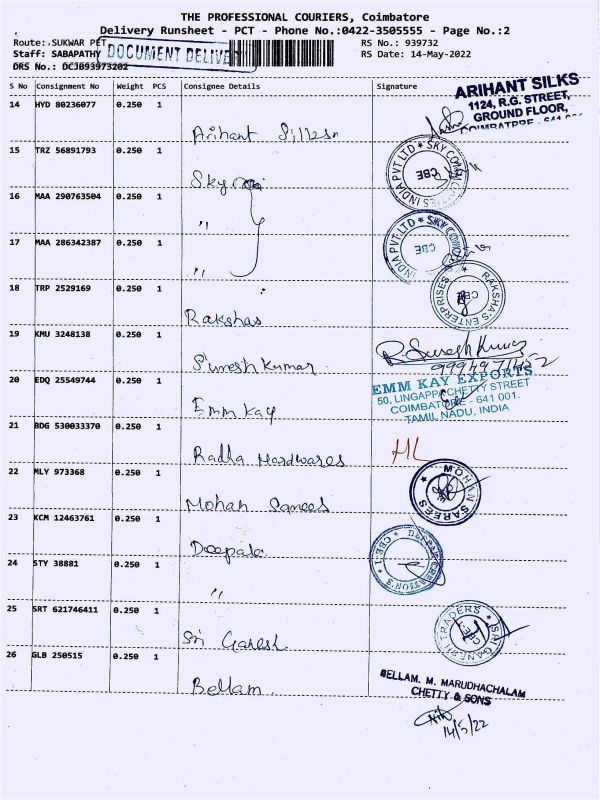 THE PROFESSIONAL COURIERS, Coimbatore
Delivery Runsheet - PCT - Phone No.:0422-3505555 - Page No.:2
Route: SUKWAR PET
RS No.: 939732
Staff: SABAPATHY
DOCUMENT DELIVE
RS Date: 14-May-2022
DRS No.: DCJ693973202
S No Consignment No Weight PCS Consignee Details Signature
ARIHANT SILKS
1124, R.G. STREET,
GROUND FLOOR,
COIMBATORE - 641
14 HYD 80236077 0.250 1
Arihant
15 TRZ 56891793 0.250 1
Sky
INDIA PVT LTD * SKY
CBE
16 MAA 290763504 0.250 1
"
17 MAA 286342387 0.250 1
"
INDIA PVT.LTD * SKY
CBE
18 TRP 2529169 0.250 1
Rakshas
RAKSHAS ENTERPRISES
CBE
19 KMU 3248138 0.250 1
Suresh Kumar
R. Suresh Kumar
20 EDQ 25549744 0.250 1
Emm Kay
EMM KAY EXPORTS
50, LINGAPPA CHETTY STREET
COIMBATORE - 641 001.
TAMIL NADU, INDIA
21 BDG 530033370 0.250 1
Radha Hardwares
HL
22 MLY 973368 0.250 1
Mohan Sarees
MOHAN SAREES
23 KCM 12463761 0.250 1
Deepak
CREATIONS
CBE-1
24 STY 38881 0.250 1
"
25 SRT 621746411 0.250 1
Sri Ganesh
SRI GANESH TRADERS
CBE
26 GLB 250515 0.250 1
Bellam
BELLAM. M. MARUDHACHALAM
CHETTY & SONS
14/5/22